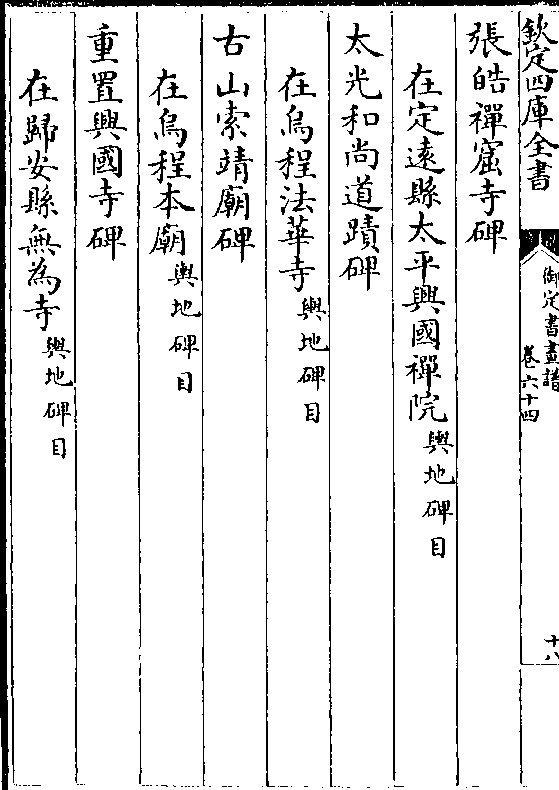 欽定四庫全書
御定書畫譜
卷六十四
十八
張皓禪窟寺碑
在定遠縣太平興國禪院輿地碑目
太光和尚道蹟碑
在烏程法華寺輿地碑目
古山索靖廟碑
在烏程本廟輿地碑目
重置興國寺碑
在歸安縣無為寺輿地碑目